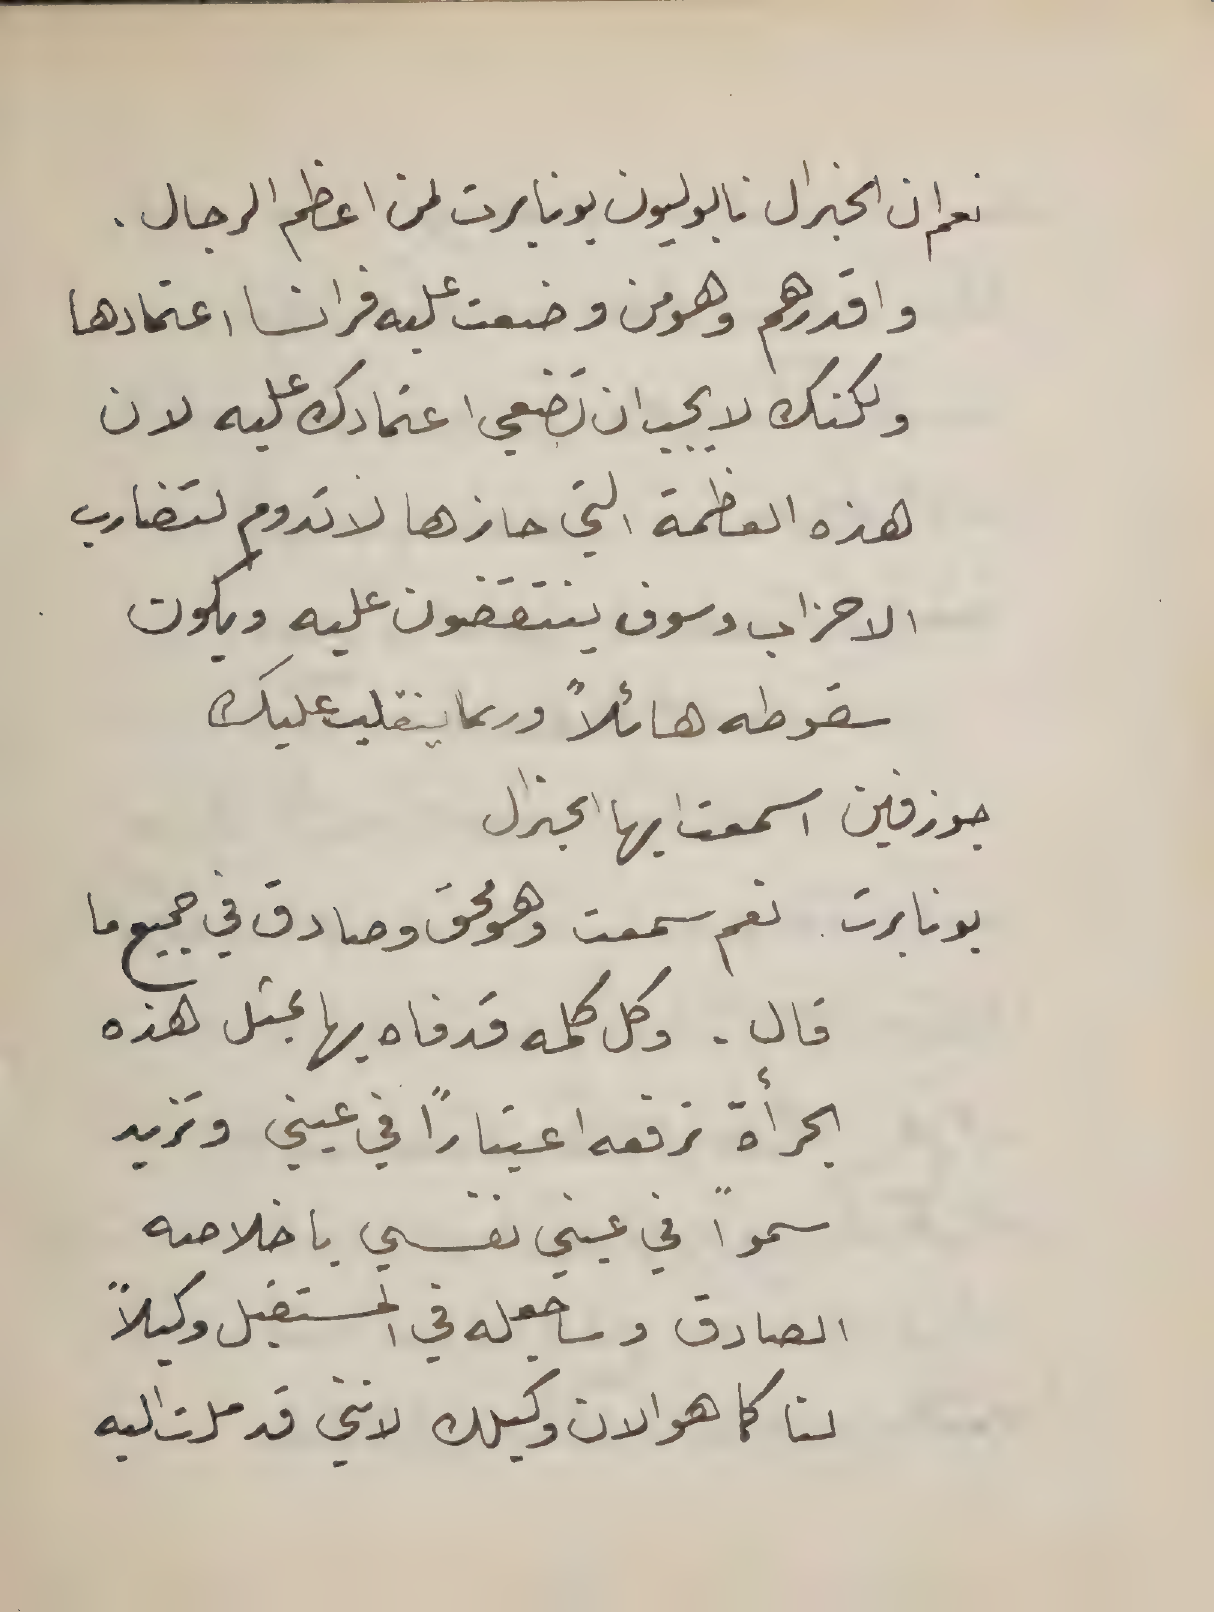 نعم ان الجنرال نابوليون بونابرت لمن اعظم الرجال .
واقدرهم وهو من وضعت عليه فرانسا اعتمادها
ولكنك لا يجب ان تضعي اعتمادك عليه لان
هذه العظمة التي حازها لا تدوم لتضارب
الاحزاب وسوف ينتقضون عليه ويكون
سقوطه هائلاً وربما ينقلب عليك
جوزفين اسمعت ايها الجنرال
بونابرت . نعم سمعت وهو محق وصادق في جميع ما
قال . وكل كلمه قد فاه بها بمثل هذه
الجرأة ترفعه اعتبارًا في عيني وتزيد
سمواً في عيني نفسي باخلاصه
الصادق وساجعله في المستقبل وكيلاً
لنا كما هو الان وكيلك لانني قد ملت اليه